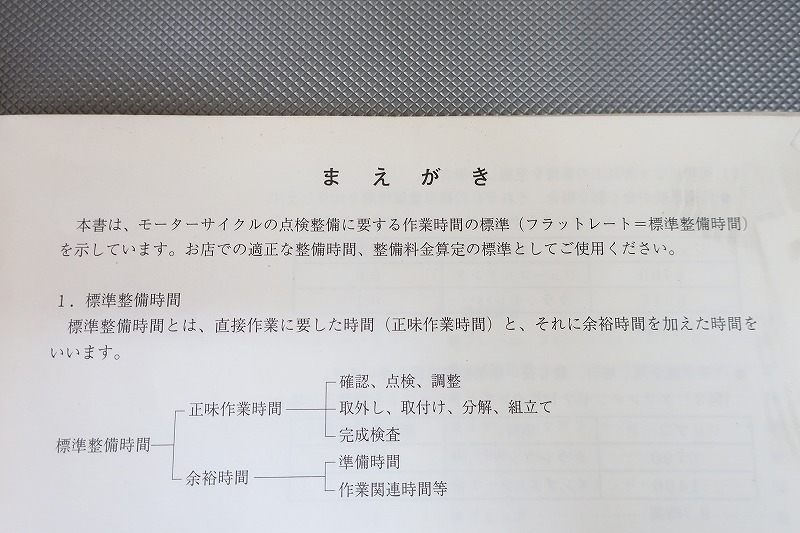 まえがき
本書は、モーターサイクルの点検整備に要する作業時間の標準（フラットレート＝標準整備時間）
を示しています。お店での適正な整備時間、整備料金算定の標準としてご使用ください。
1．標準整備時間
標準整備時間とは、直接作業に要した時間（正味作業時間）と、それに余裕時間を加えた時間を
いいます。
標準整備時間
正味作業時間
確認、点検、調整
取外し、取付け、分解、組立て
完成検査
余裕時間
準備時間
作業関連時間等